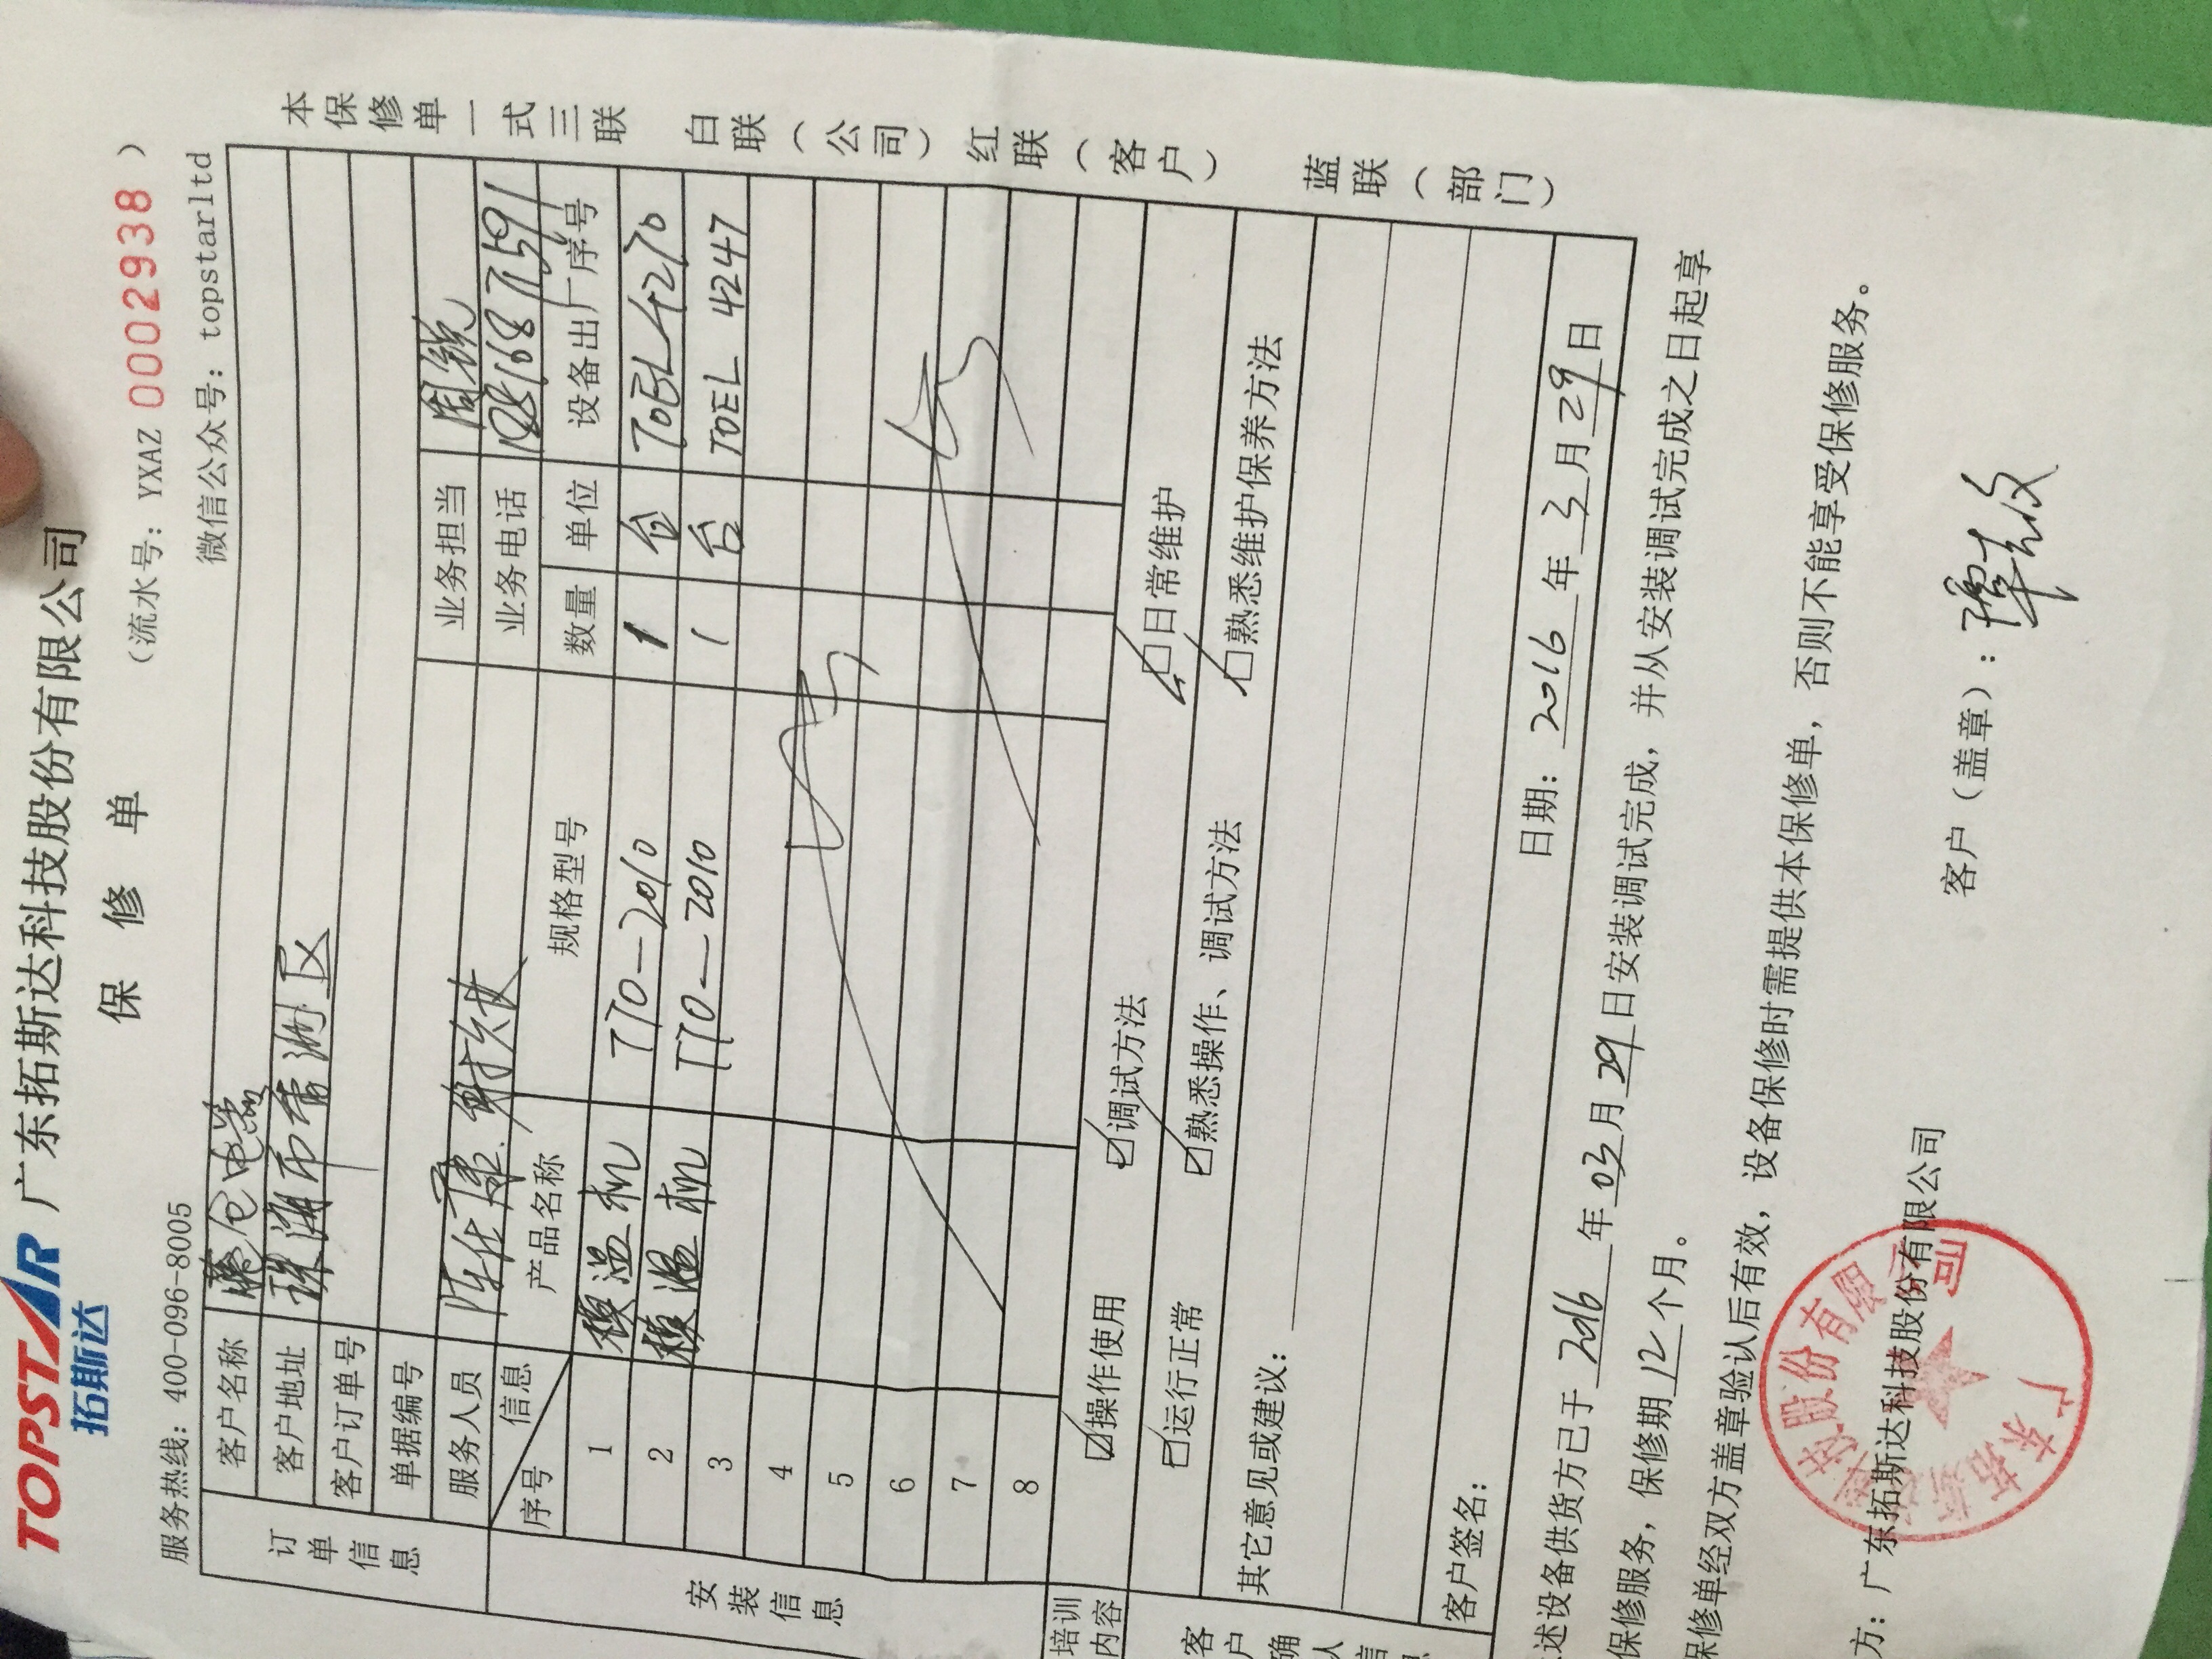 TOPSTAR 广东拓斯达科技股份有限公司
拓斯达
保 修 单 (流水号: YXAZ 0002938 )
服务热线: 400-096-8005 微信公众号: topstarltd
订单信息
客户名称 电器
客户地址 珠海市香洲区
客户订单号
单据编号 业务担当 周锐
服务人员 陈仕康 谢 业务电话
序号 信息 产品名称 规格型号 数量 单位 设备出厂序号
安装信息
1 模温机 TTO-2010 1 台 TOEL4270
2 模温机 TTO-2010 1 台 TOEL 4247
3
4
5
6
7
8
培训内容 操作使用 调试方法 日常维护
客户确人信 运行正常 熟悉操作、调试方法 熟悉维护保养方法
其它意见或建议:
客户签名: 日期: 2016 年 3 月 29 日
述设备供货方已于 2016 年 03 月 29 日安装调试完成, 并从安装调试完成之日起享
保修服务, 保修期 12 个月。
保修单经双方盖章验认后有效, 设备保修时需提供本保修单, 否则不能享受保修服务。
方: 广东拓斯达科技股份有限公司 客户 (盖章) :
本保修单一式三联 白联(公司) 红联(客户) 蓝联(部门)